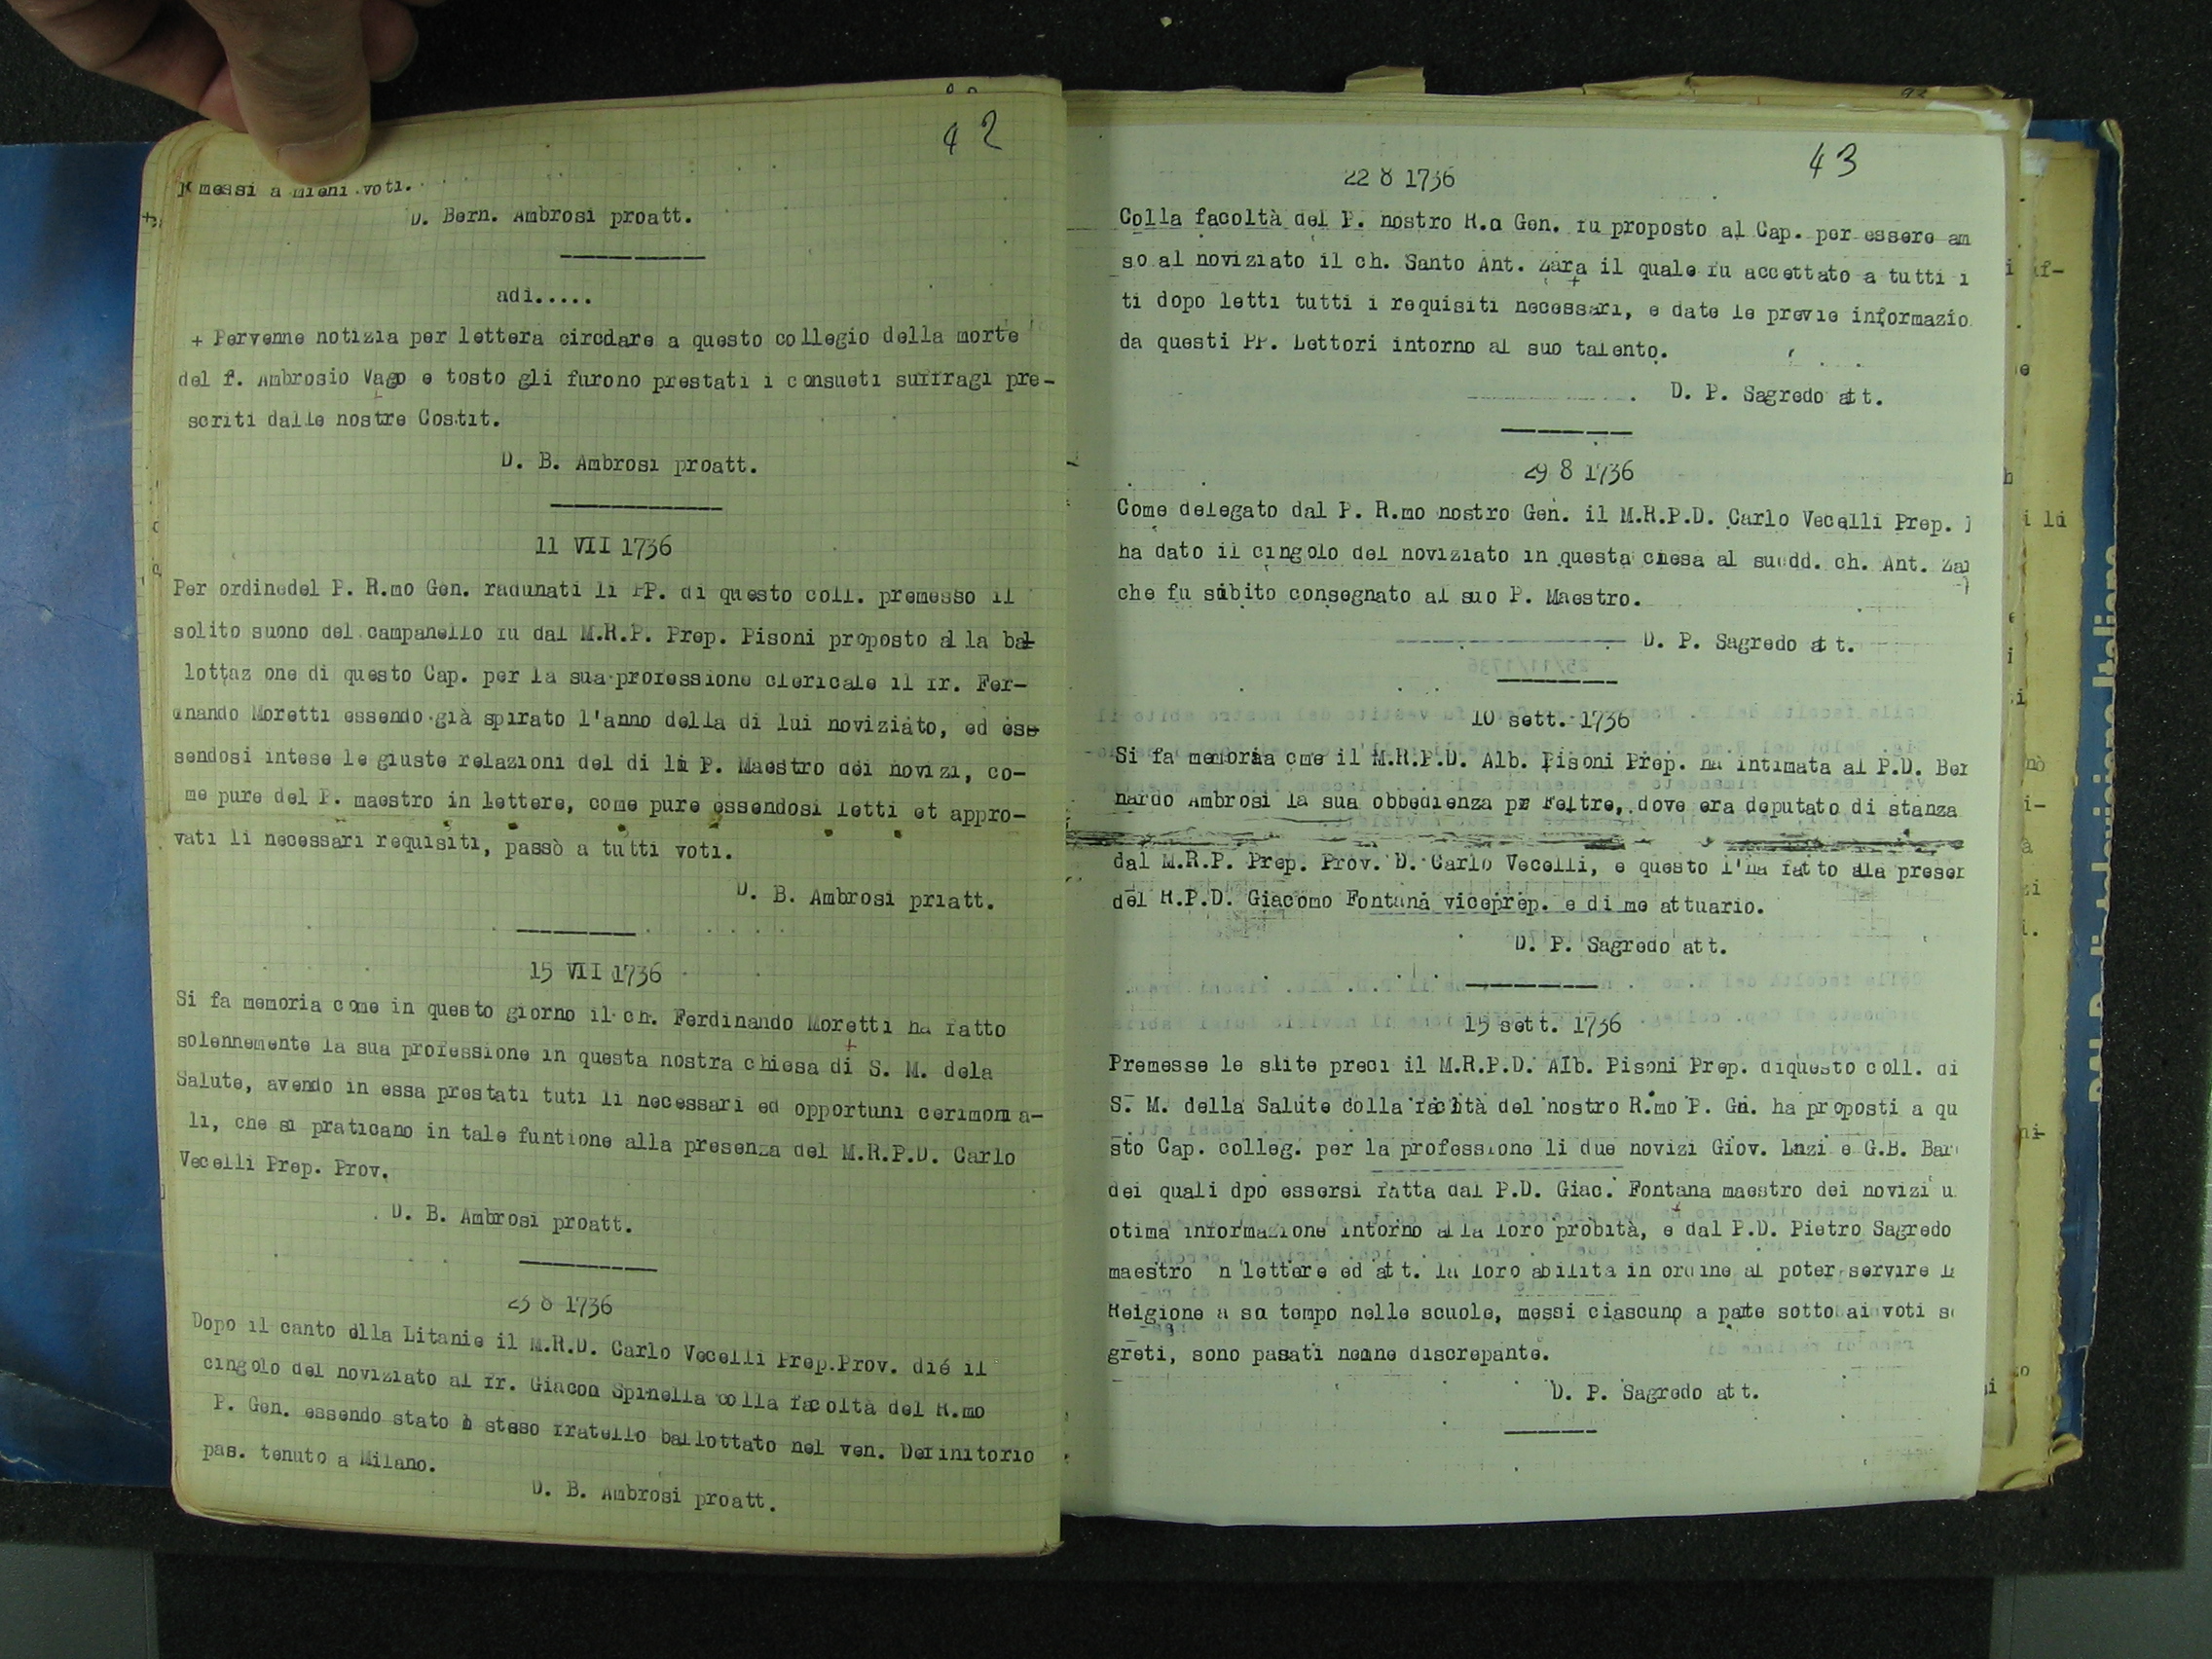 42
messi a pieni voti.
D. Bern. Ambrosi proatt.
adi.....
+ Pervenne notizia per lettera circdare a questo collegio della morte
del P. Ambrosio Vago e tosto gli furono prestati i consueti suffragi pre-
scriti dalle nostre Costit.
D. B. Ambrosi proatt.
11 VII 1736
Per ordinedel P. R.mo Gen. radunati li PP. di questo coll. premesso il
solito suono del campanello fu dal M.R.P. Prep. Pisoni proposto al la bal
lottaz one di questo Cap. per la sua professione clericale il fr. Fer-
nando Moretti essendo già spirato l'anno della di lui noviziato, ed es
sendosi intese le giuste relazioni del di lui P. Maestro dei novizi, co-
me pure del P. maestro in lettere, come pure essendosi letti et appro-
vati li necessari requisiti, passò a tutti voti.
D. B. Ambrosi priatt.
15 VII 1736
Si fa memoria come in questo giorno il ch. Ferdinando Moretti ha fatto
solennemente la sua professione in questa nostra chiesa di S. M. dela
Salute, avendo in essa prestati tuti li necessari ed opportuni cerimonia-
li, che si praticano in tale funtione alla presenza del M.R.P.D. Carlo
Vecelli Prep. Prov.
D. B. Ambrosi proatt.
23 8 1736
Dopo il canto dlla Litanie il M.R.D. Carlo Vecelli Prep.Prov. dié il
cingolo del noviziato al fr. Giacon Spinella colla facoltà del R.mo
P. Gen. essendo stato lo steso fratello ballottato nel ven. Definitorio
pas. tenuto a Milano.
D. B. Ambrosi proatt.
43
22 8 1736
Colla facoltà del P. nostro R.o Gen. fu proposto al Cap. per essere am
so al noviziato il ch. Santo Ant. Zara il quale fu accettato a tutti i
ti dopo letti tutti i requisiti necessari, e date le previe informazio
da questi PP. Lettori intorno al suo talento.
D. P. Sagredo att.
29 8 1736
Come delegato dal P. R.mo nostro Gen. il M.R.P.D. Carlo Vecelli Prep.
ha dato il cingolo del noviziato in questa chesa al suddd. ch. Ant. Zar
che fu subito consegnato al suo P. Maestro.
D. P. Sagredo att.
10 sett. 1736
Si fa memoria cme il M.R.P.D. Alb. Pisoni Prep. ha intimata al P.D. Ber
nardo Ambrosi la sua obbedienza pr Feltre, dove era deputato di stanza
dal M.R.P. Prep. Prov. D. Carlo Vecelli, e questo l'ha fatto alla presen
del R.P.D. Giacomo Fontana viceprep. e di me attuario.
D. P. Sagredo att.
15 sett. 1736
Premesse le slite preci il M.R.P.D. Alb. Pisoni Prep. diquesto coll. di
S. M. della Salute colla facltà del nostro R.mo P. Gn. ha proposti a qu
sto Cap. colleg. per la professione li due novizi Giov. Lnzi e G.B. Bar
dei quali dpo essersi fatta dal P.D. Giac. Fontana maestro dei novizi u
otima informazione intorno alla loro probità, e dal P.D. Pietro Sagredo
maestro n lettere ed att. la loro abilita in ordine al poter servire la
Relgione a so tempo nelle scuole, messi ciascuno a pate sotto ai voti se
greti, sono pasati nemne discrepante.
D. P. Sagredo att.